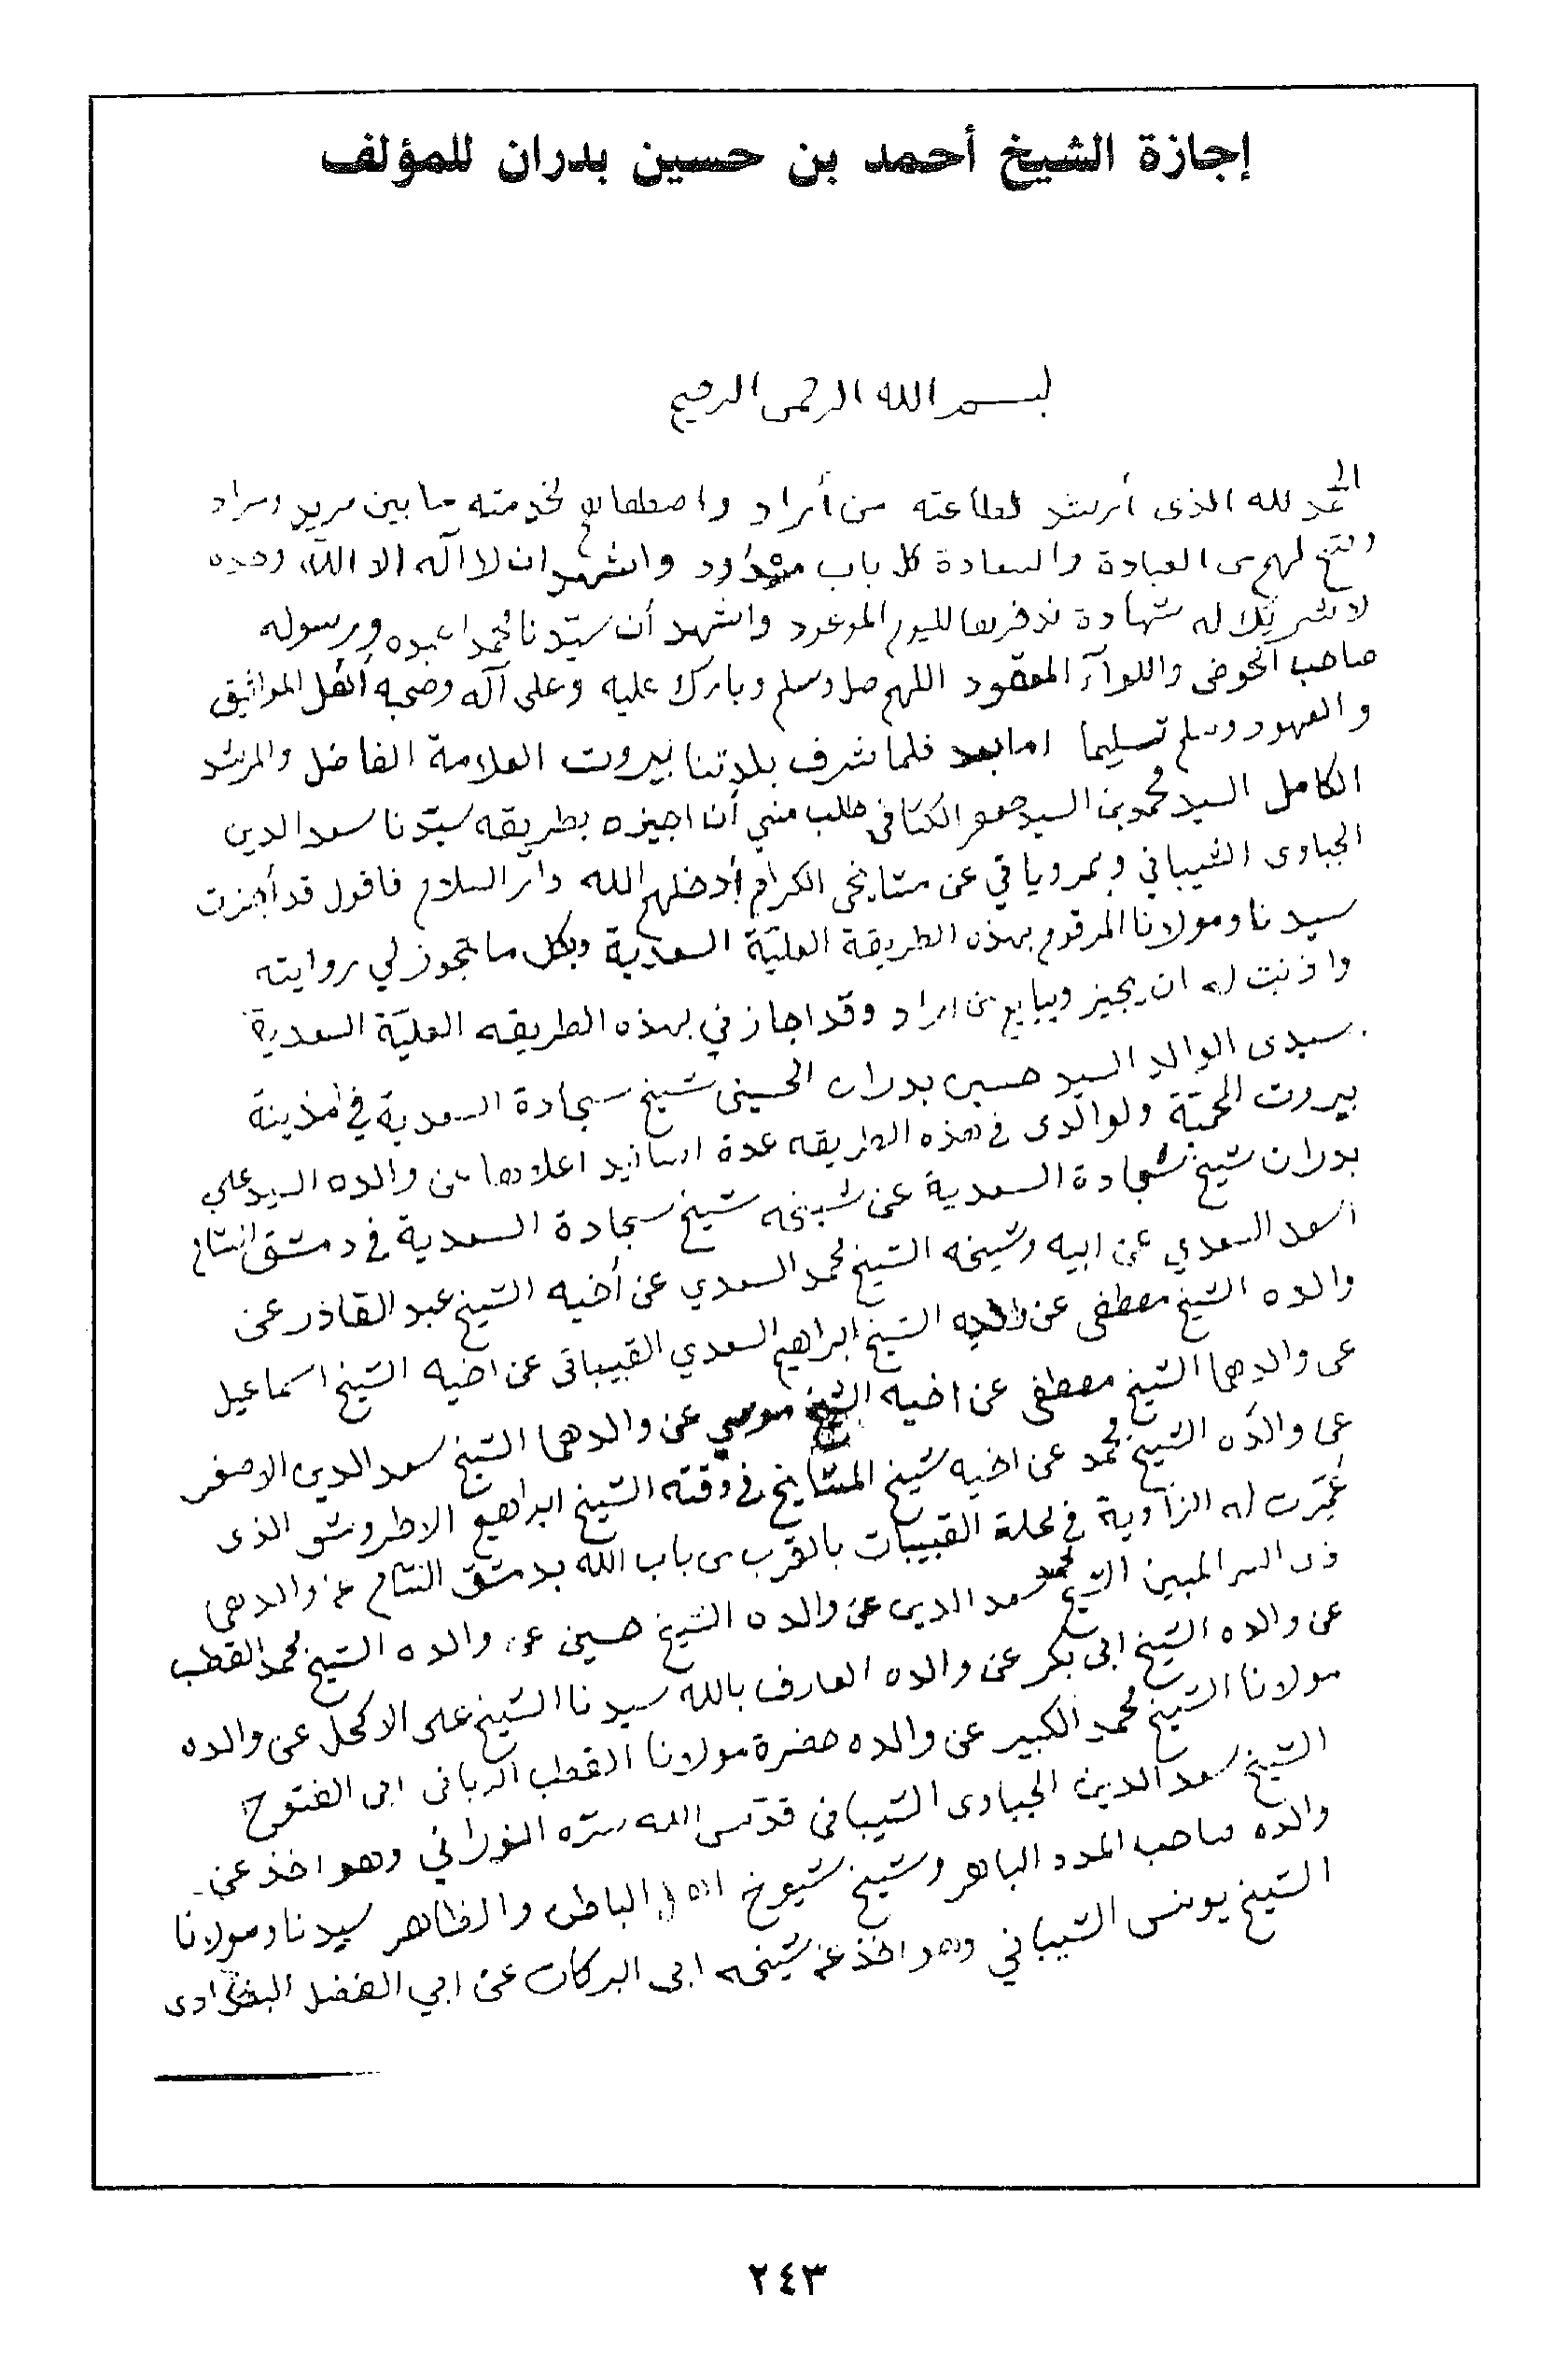 إجازة الشيخ أحمد بن حسين بدران للمؤلف
بسم الله الرحمن الرحيم
الحمد لله الذى أرشد لطاعته من أراد واصطفاهم لخدمته ما بين مريد ومراد
وفتح لهم من العبادة والسعادة كل باب مسدود واشهد ان لا اله الا الله وحده
لا شريك له شهادة ندخرها لليوم الموعود واشهد أن سيّدنا محمدا عبده ورسوله
صاحب الحوض واللوآء المعقود اللهم صل وسلم وبارك عليه وعلى آله وصحبه أهل المواثيق
والعهود وسلم تسليما اما بعد فلما شرف بلدتنا بيروت العلامة الفاضل والمرشد
الكامل السيد محمد بن السيد جعفر الكتانى طلب مني أن اجيزه بطريقه سيّدنا سعد الدين
الجباوى الشيباني وبمروياتي عن مشايخى الكرام أدخلهم الله دار السلام فاقول قد أجزت
سيدنا ومولانا المرقوم بهذه الطريقة العليّة السعدية وبكل ما تجوز لي روايته
واذنت له ان يجيز ويبايع من اراد وقد اجازني بهذه الطريقه العليّة السعدية
سيدى الوالد السيد حسين بدران الحسينى شيخ سجادة السعدية في مدينة
بيروت المحميّة ولوالدى في هذه الطريقه عدة اسانيد اعلاها عن والده السيد علي
بدران شيخ سجادة السعدية عن شيخه شيخ سجادة السعدية في دمشق الشام
اسعد السعدي عن ابيه وشيخه الشيخ محمد السعدي عن أخيه الشيخ عبد القادر عن
والده الشيخ مصطفى عن والده الشيخ ابراهيم السعدي القبيباتى عن اخيه الشيخ اسماعيل
عن والدهما الشيخ مصطفى عن اخيه الشيخ موسى عن والدهما الشيخ سعد الدين الاصغر
عن والده الشيخ محمد عن اخيه شيخ المشايخ في وقته الشيخ ابراهيم الاطروش الذى
عُمّرت له الزاوية في محلة القبيبات بالقرب من باب الله بدمشق الشام عن والدهما
ذى السر المبين الشيخ محمد سعد الدين عن والده الشيخ حسين عن والده الشيخ محمد القطب
عن والده الشيخ ابى بكر عن والده العارف بالله سيدنا الشيخ على الاكحل عن والده
مولانا الشيخ محمد الكبير عن والده حضرة مولانا القطب الربانى ابى الفتوح
الشيخ سعد الدين الجباوى الشيبانى قدّس الله سرّه النوراني وهو اخذ عن
والده صاحب المدد الباهر وشيخ شيوخ اهل الباطن والظاهر سيدنا ومولانا
الشيخ يونس الشيباني وهو اخذ عن شيخه ابى البركات عن ابي الفضل البغدادى
٢٤٣